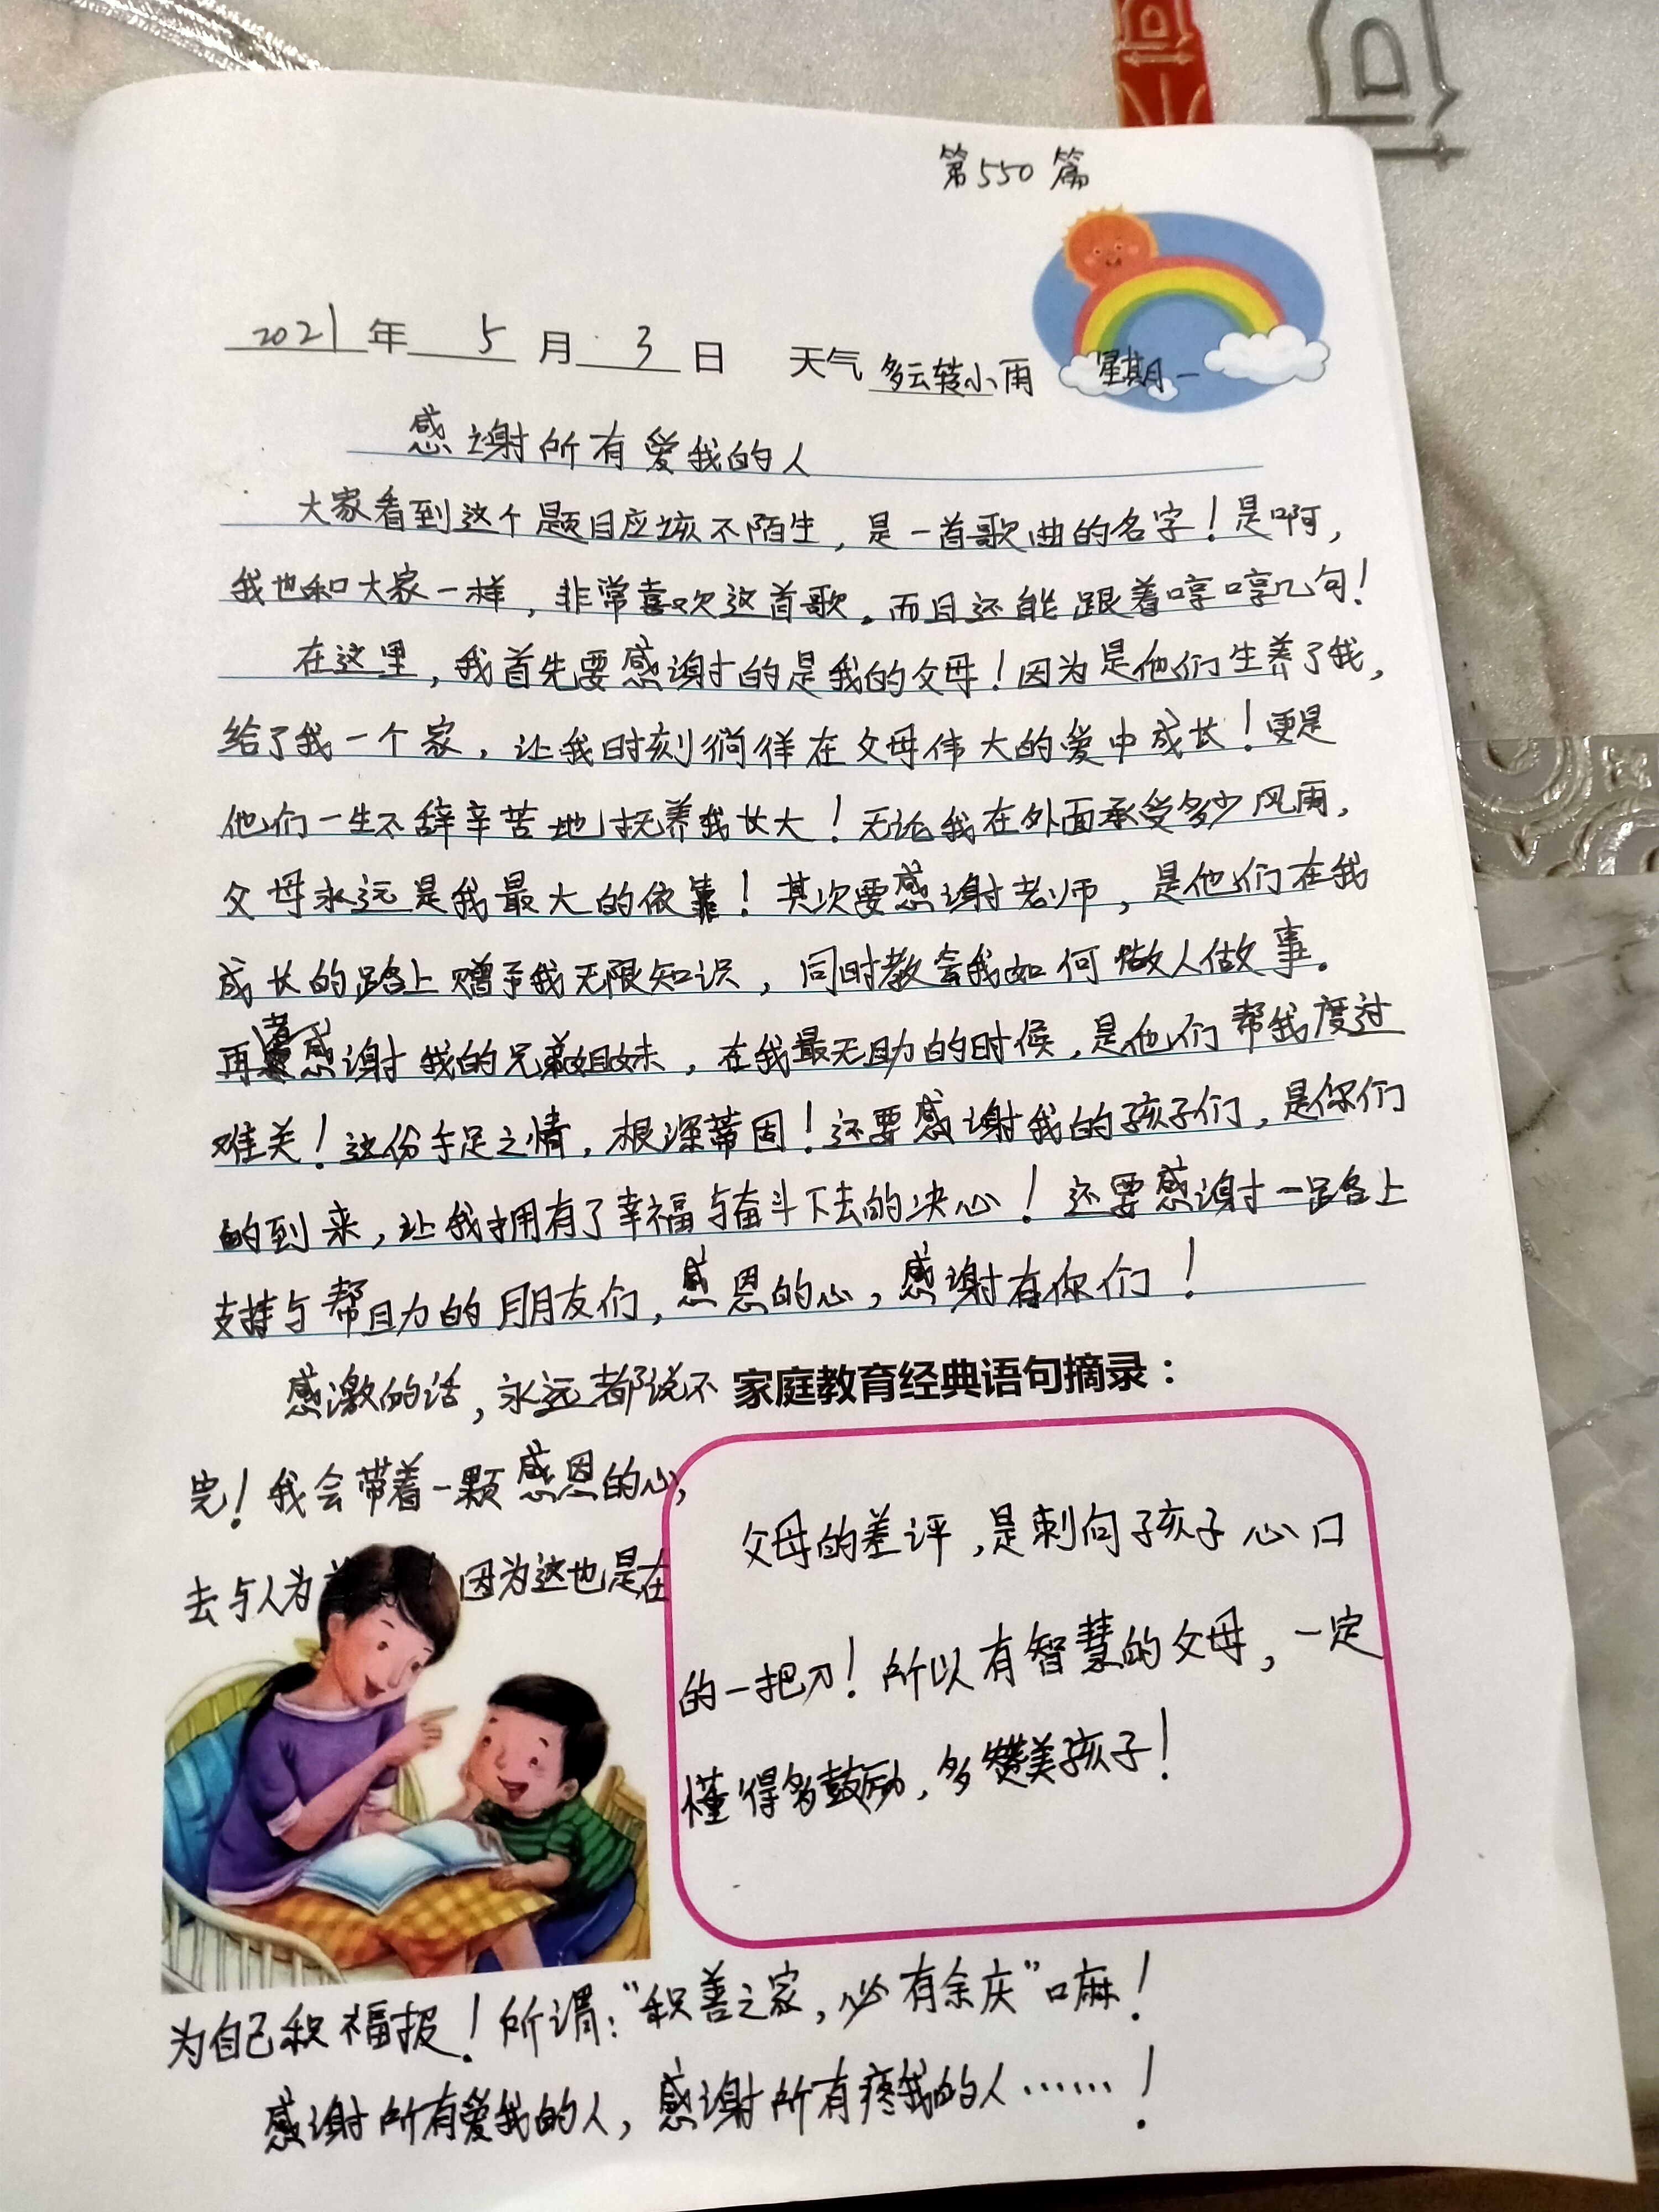 第550篇
2021年 5 月 3 日 天气 多云转小雨 星期一
感谢所有爱我的人
大家看到这个题目应该不陌生，是一首歌曲的名字！是啊，
我也和大家一样，非常喜欢这首歌。而且还能跟着哼哼几句！
在这里，我首先要感谢的是我的父母！因为是他们生养了我，
给了我一个家，让我时刻徜徉在父母伟大的爱中成长！更是
他们一生不辞辛苦地抚养我长大！无论我在外面承受多少风雨，
父母永远是我最大的依靠！其次要感谢老师，是他们在我
成长的路上赠予我无限知识，同时教会我如何做人做事。
再者感谢我的兄弟姐妹，在我最无助的时候，是他们帮我度过
难关！这份手足之情，根深蒂固！还要感谢我的孩子们，是你们
的到来，让我拥有了幸福与奋斗下去的决心！还要感谢一路上
支持与帮助的朋友们，感恩的心，感谢有你们！
感激的话，永远都说不
完！我会带着一颗感恩的心，
去与人为 因为这也是在
家庭教育经典语句摘录：
父母的差评，是刺向孩子心口
的一把刀！所以有智慧的父母，一定
懂得多鼓励，多赞美孩子！
为自己积福报！所谓：“积善之家，必有余庆”嘛！
感谢所有爱我的人，感谢所有疼我的人……！